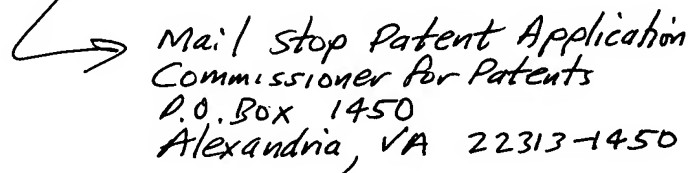 Mail Stop Patent Application
Commissioner for Patents
P.O. Box 1450
Alexandria, VA 22313-1450